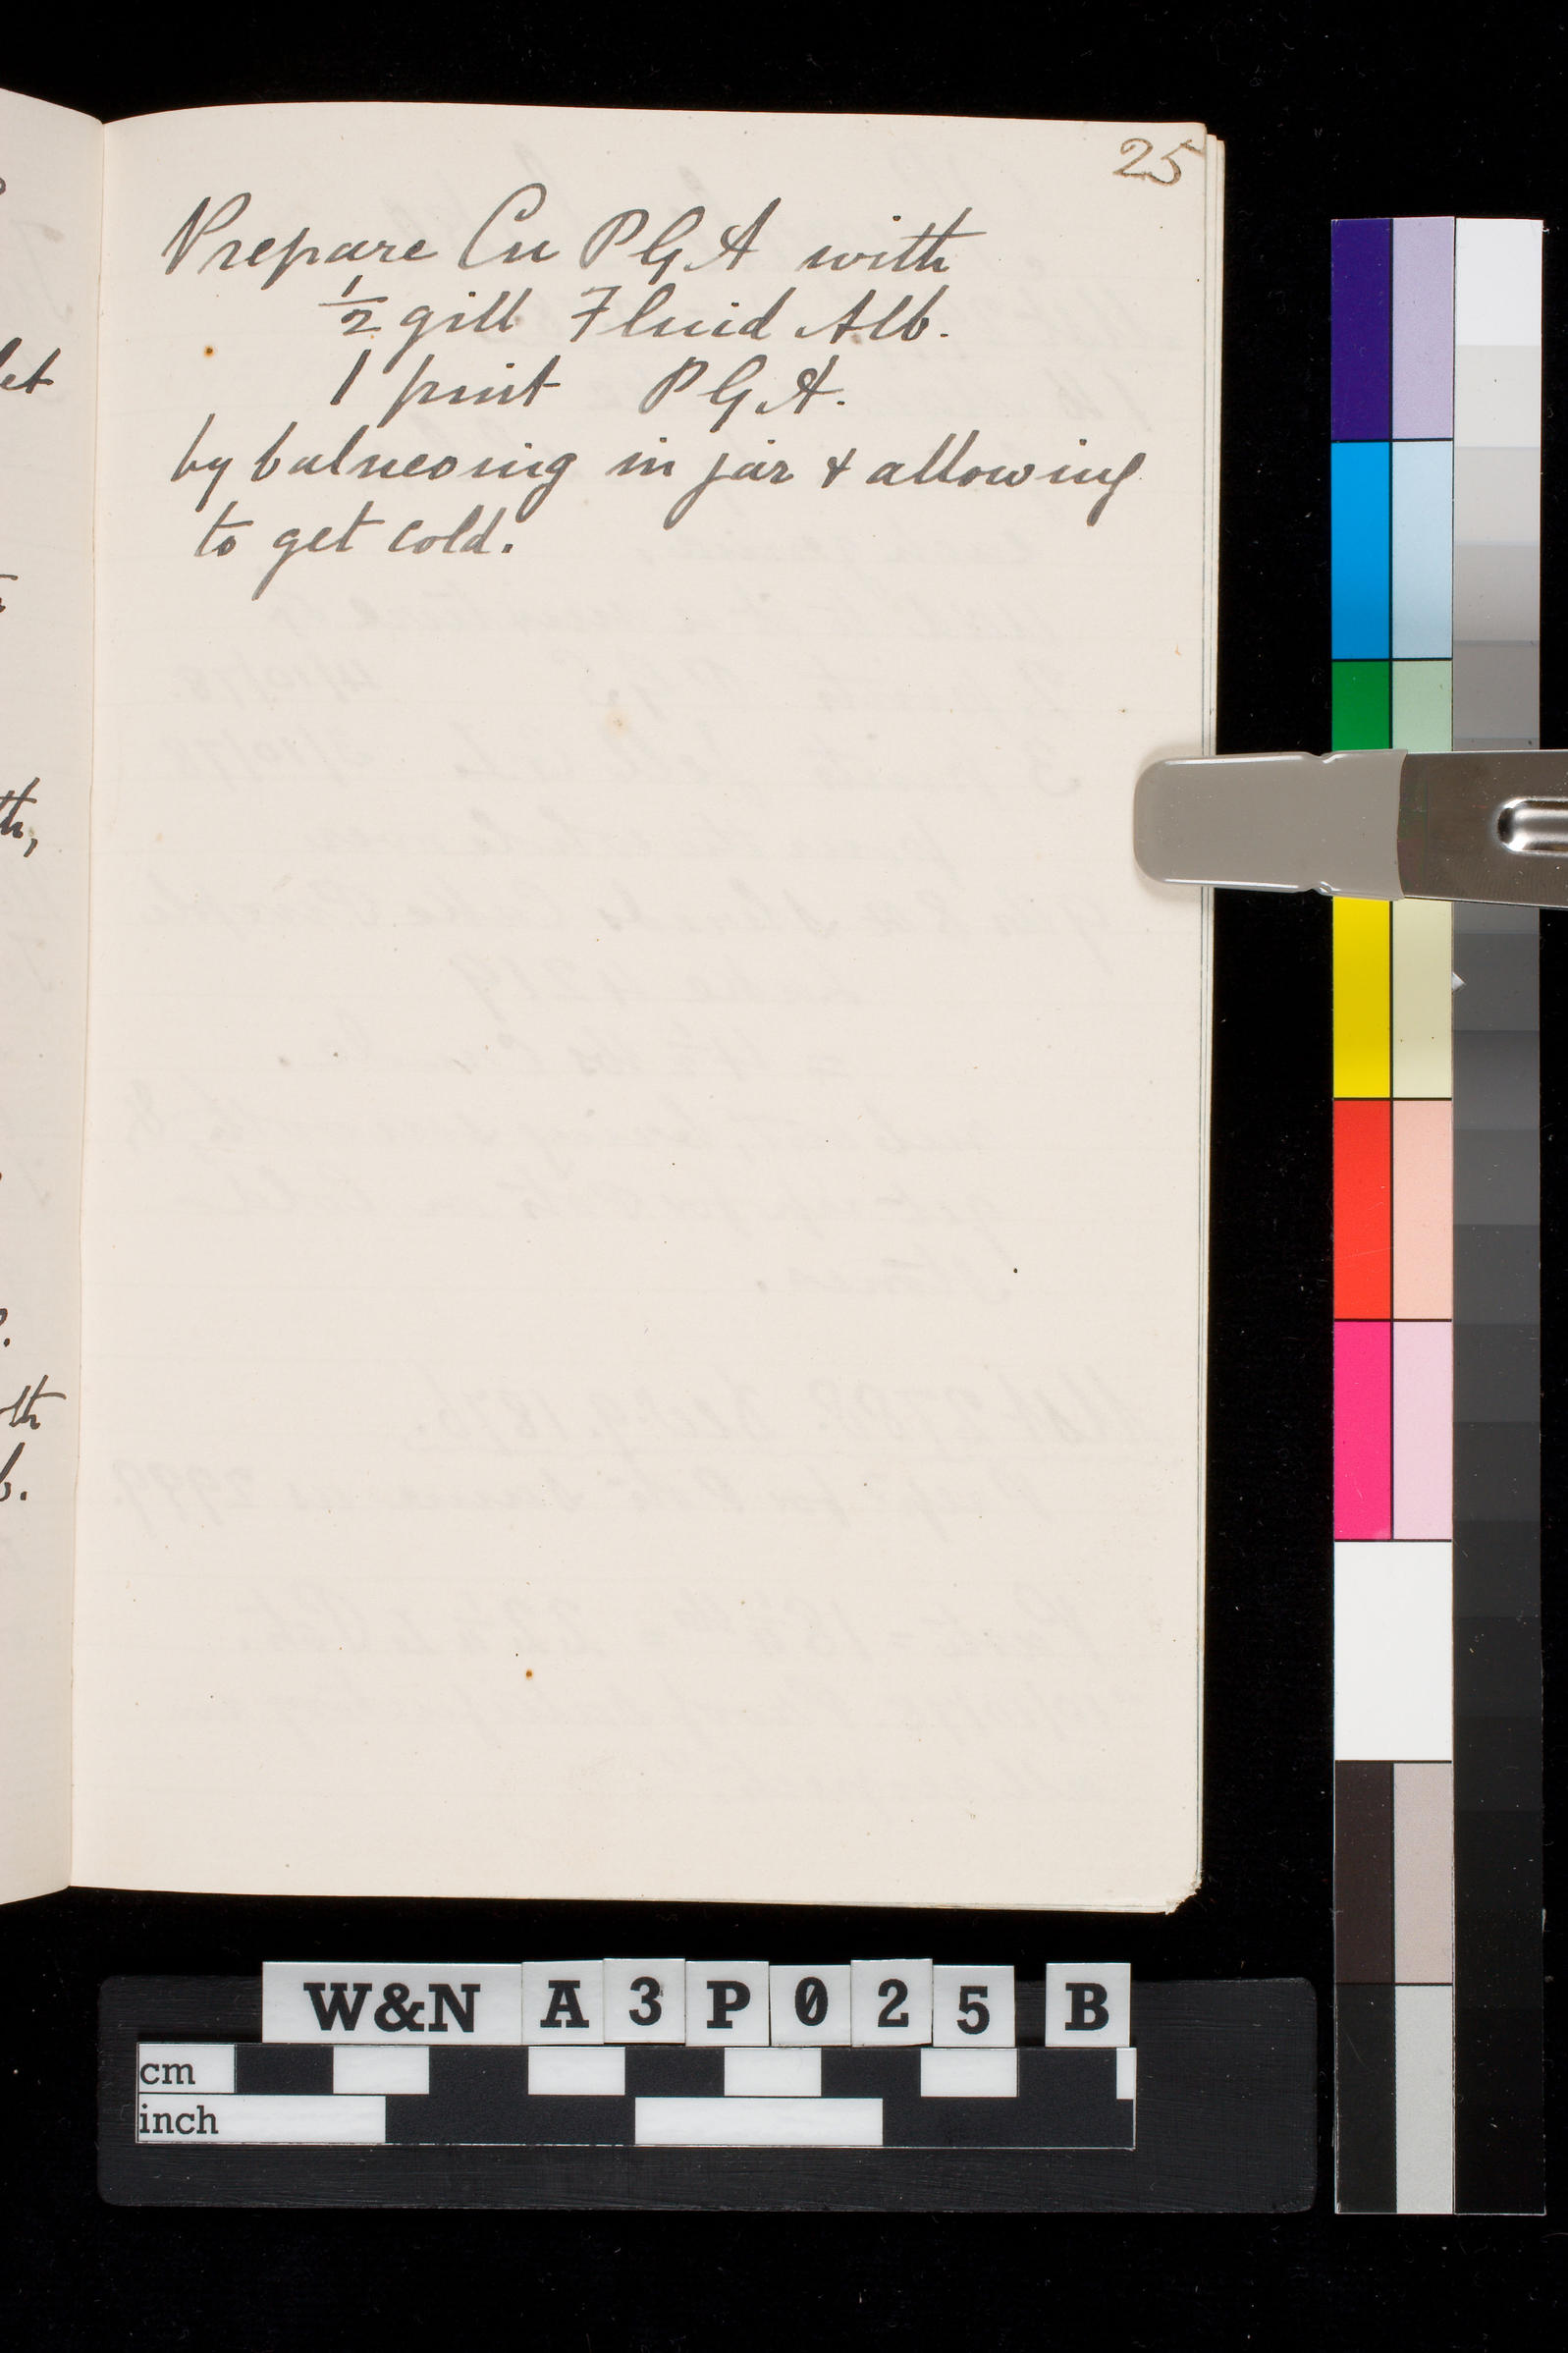 25
Prepare Cu P G A with
½ gill Fluid Alb.
1 pint P G A.
by balneosing in jar & allowing
to get cold.
let
th,
oth
b.
W&N A 3 P 0 2 5 B
cm
inch